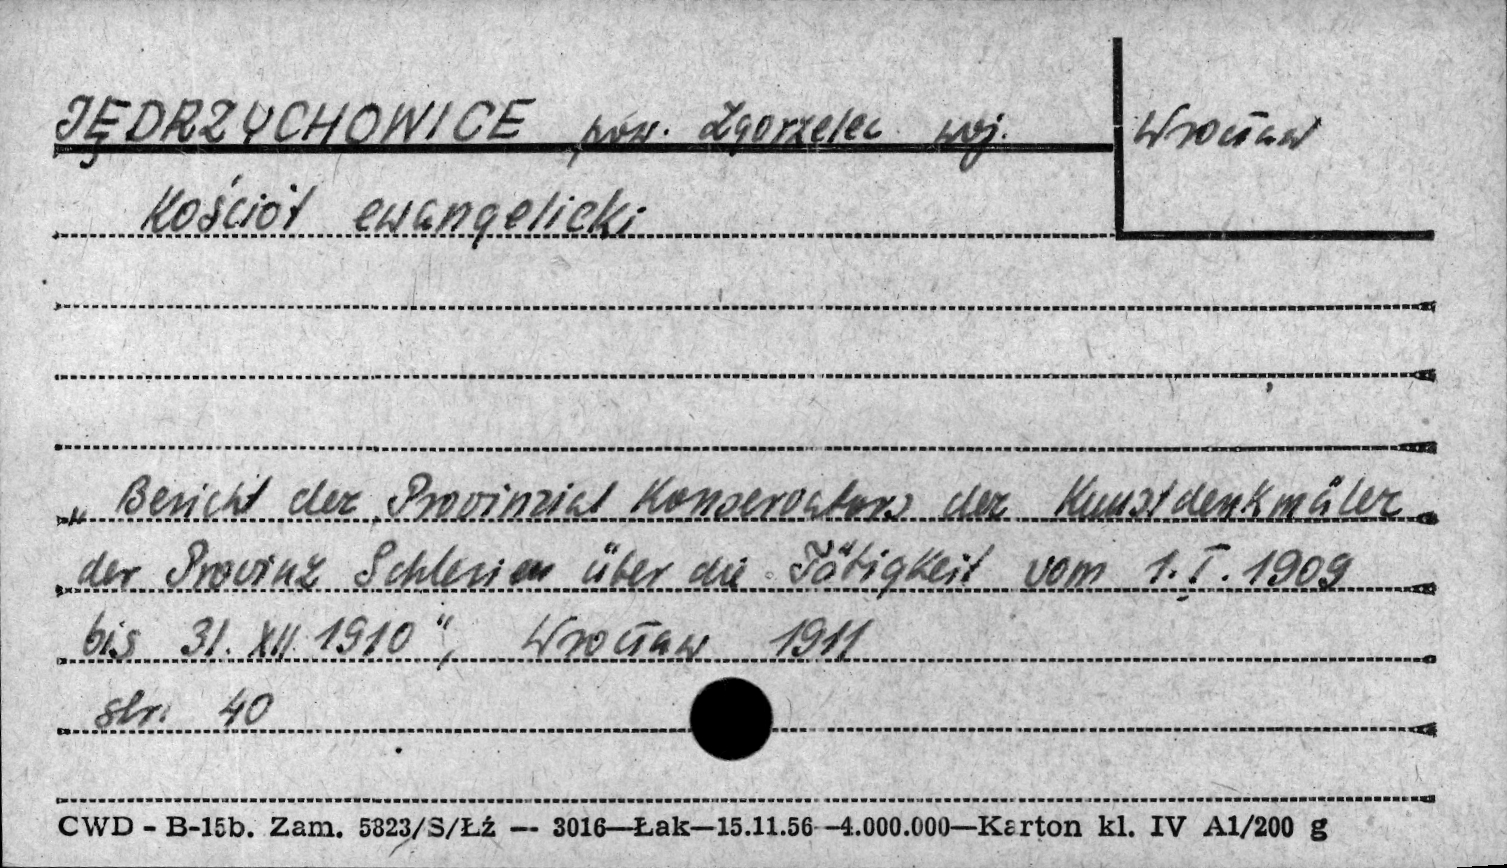 JĘDRZYCHOWICE pow. Zgorzelec woj. Wrocław
Kościół ewangelicki
„Bericht der Provinzial Konservators der Kunstdenkmäler
der Provinz Schlesien über die Tätigkeit vom 1.I.1909
bis 31.XII.1910", Wrocław 1911
str. 40
CWD - B-15b. Zam. 5823/S/Łź — 3016—Łak—15.11.56—4.000.000—Karton kl. IV A1/200 g